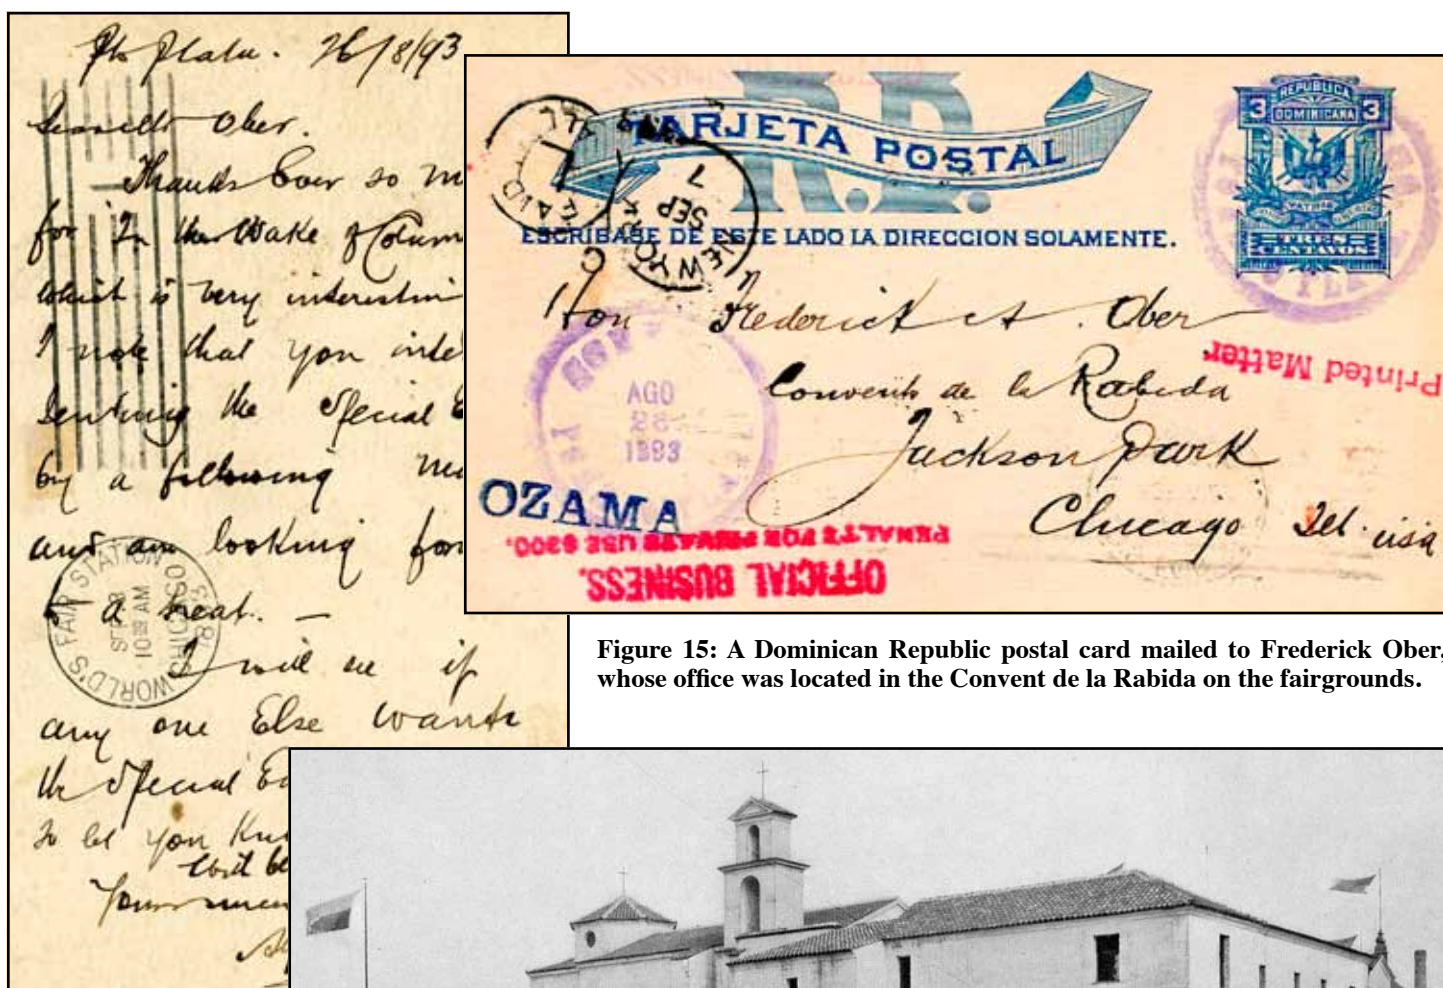 Pto Plata. 26/8/93
Ober.
Thanks Ever so m
for "In the Wake of Colum
which is very interestin
I note that you inte
sending the Special E
by a following
and am looking for
to a treat. —
I will see if
any one Else wants
the Special Ed
to let you Kn
Yours
WORLD'S FAIR STATION
CHICAGO
SEP
10 AM
1893
R.D.
TARJETA POSTAL
ESCRIBASE DE ESTE LADO LA DIRECCION SOLAMENTE.
REPUBLICA
DOMINICANA
3 3
CENTAVOS
PAID
ALL
NEW YORK
SEP
7
Hon Frederick A. Ober
Convent de la Rabida
Jackson Park
Chicago Ill. usa
Printed Matter
AGO
1893
OZAMA
OFFICIAL BUSINESS.
PENALTY FOR PRIVATE USE $300.
Figure 15: A Dominican Republic postal card mailed to Frederick Ober,
whose office was located in the Convent de la Rabida on the fairgrounds.